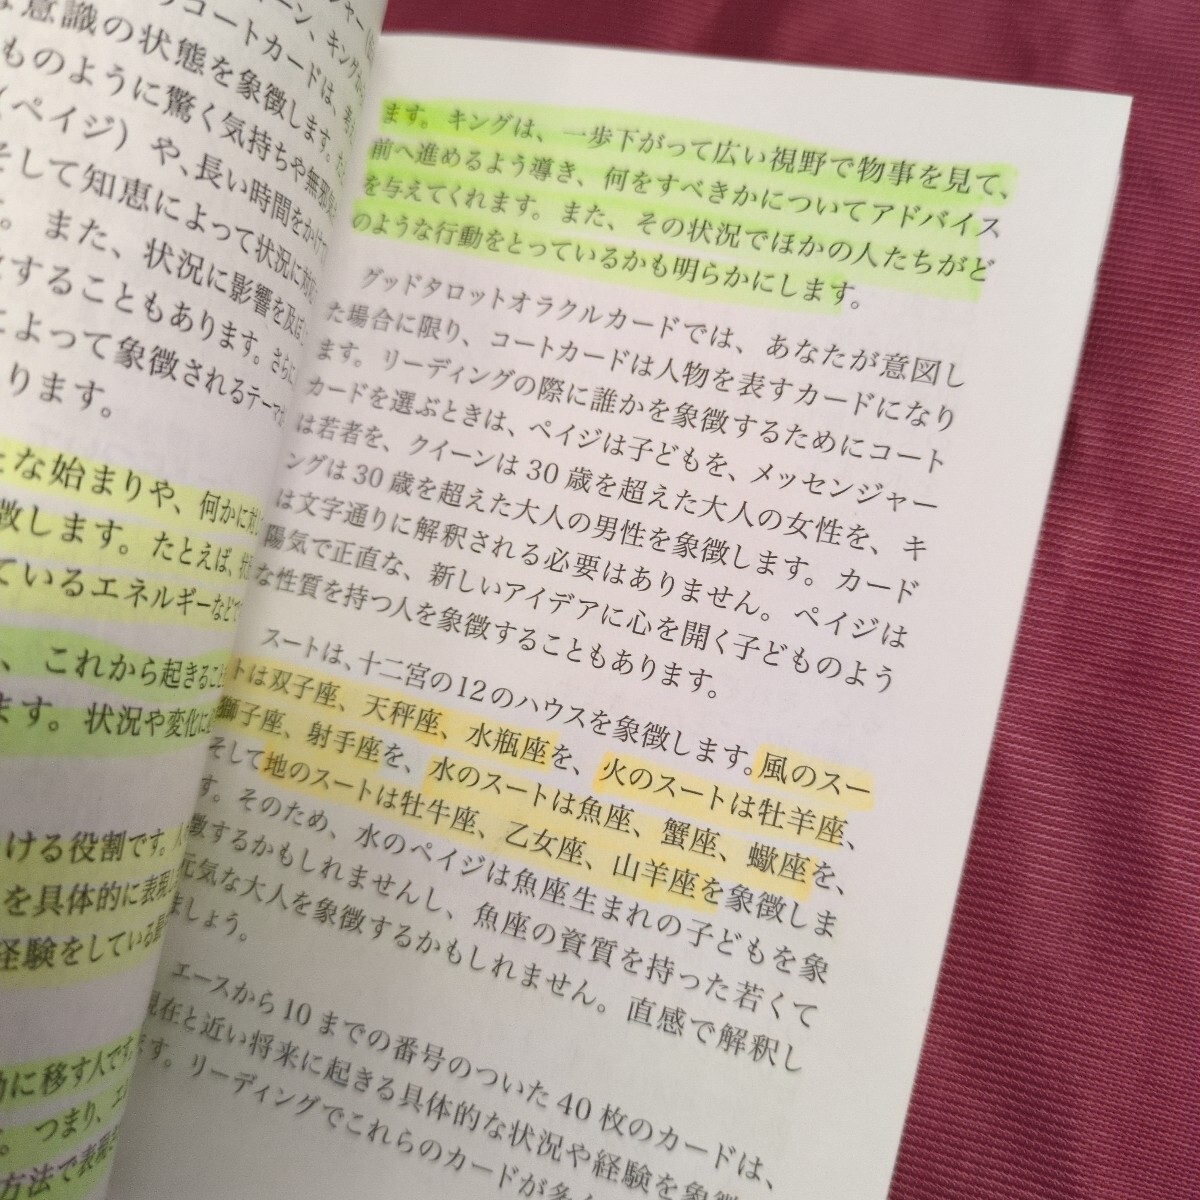 意識の状態を象徴します。
ものように驚く気持ちや無邪
（ペイジ）や、長い時間をかけ
そして知恵によって状況に対
また、状況に影響を及ぼ
することもあります。さらに
によって象徴されるテーマ
ります。
な始まりや、何かに対
徴します。たとえば、
ているエネルギーなどで
、これから起きること
ます。状況や変化に
ける役割です。
を具体的に表現し
経験をしている
に移す人です
つまり、エ
方法で表現
ます。キングは、一歩下がって広い視野で物事を見て、
前へ進めるよう導き、何をすべきかについてアドバイス
を与えてくれます。また、その状況でほかの人たちがど
のような行動をとっているかも明らかにします。
グッドタロットオラクルカードでは、あなたが意図し
た場合に限り、コートカードは人物を表すカードになり
ます。リーディングの際に誰かを象徴するためにコート
カードを選ぶときは、ペイジは子どもを、メッセンジャー
は若者を、クイーンは30歳を超えた大人の女性を、キ
ングは30歳を超えた大人の男性を象徴します。カード
は文字通りに解釈される必要はありません。ペイジは
陽気で正直な、新しいアイデアに心を開く子どものよう
な性質を持つ人を象徴することもあります。
スートは、十二宮の12のハウスを象徴します。風のスー
トは双子座、天秤座、水瓶座を、火のスートは牡羊座、
獅子座、射手座を、水のスートは魚座、蟹座、蠍座を、
そして地のスートは牡牛座、乙女座、山羊座を象徴しま
す。そのため、水のペイジは魚座生まれの子どもを象
徴するかもしれませんし、魚座の資質を持った若くて
元気な大人を象徴するかもしれません。直感で解釈し
ましょう。
エースから10までの番号のついた40枚のカードは、
現在と近い将来に起きる具体的な状況や経験を象徴
ます。リーディングでこれらのカードが多く